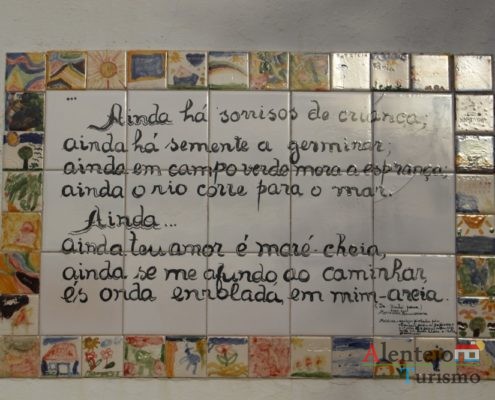 ...
Ainda há sorrisos de criança;
ainda há semente a germinar;
ainda em campo verde mora a esprança;
ainda o rio corre para o mar.
Ainda...
ainda teu amor é maré-cheia,
ainda se me afundo ao caminhar,
és onda enrolada, em mim-areia.
Alentejo
Turismo